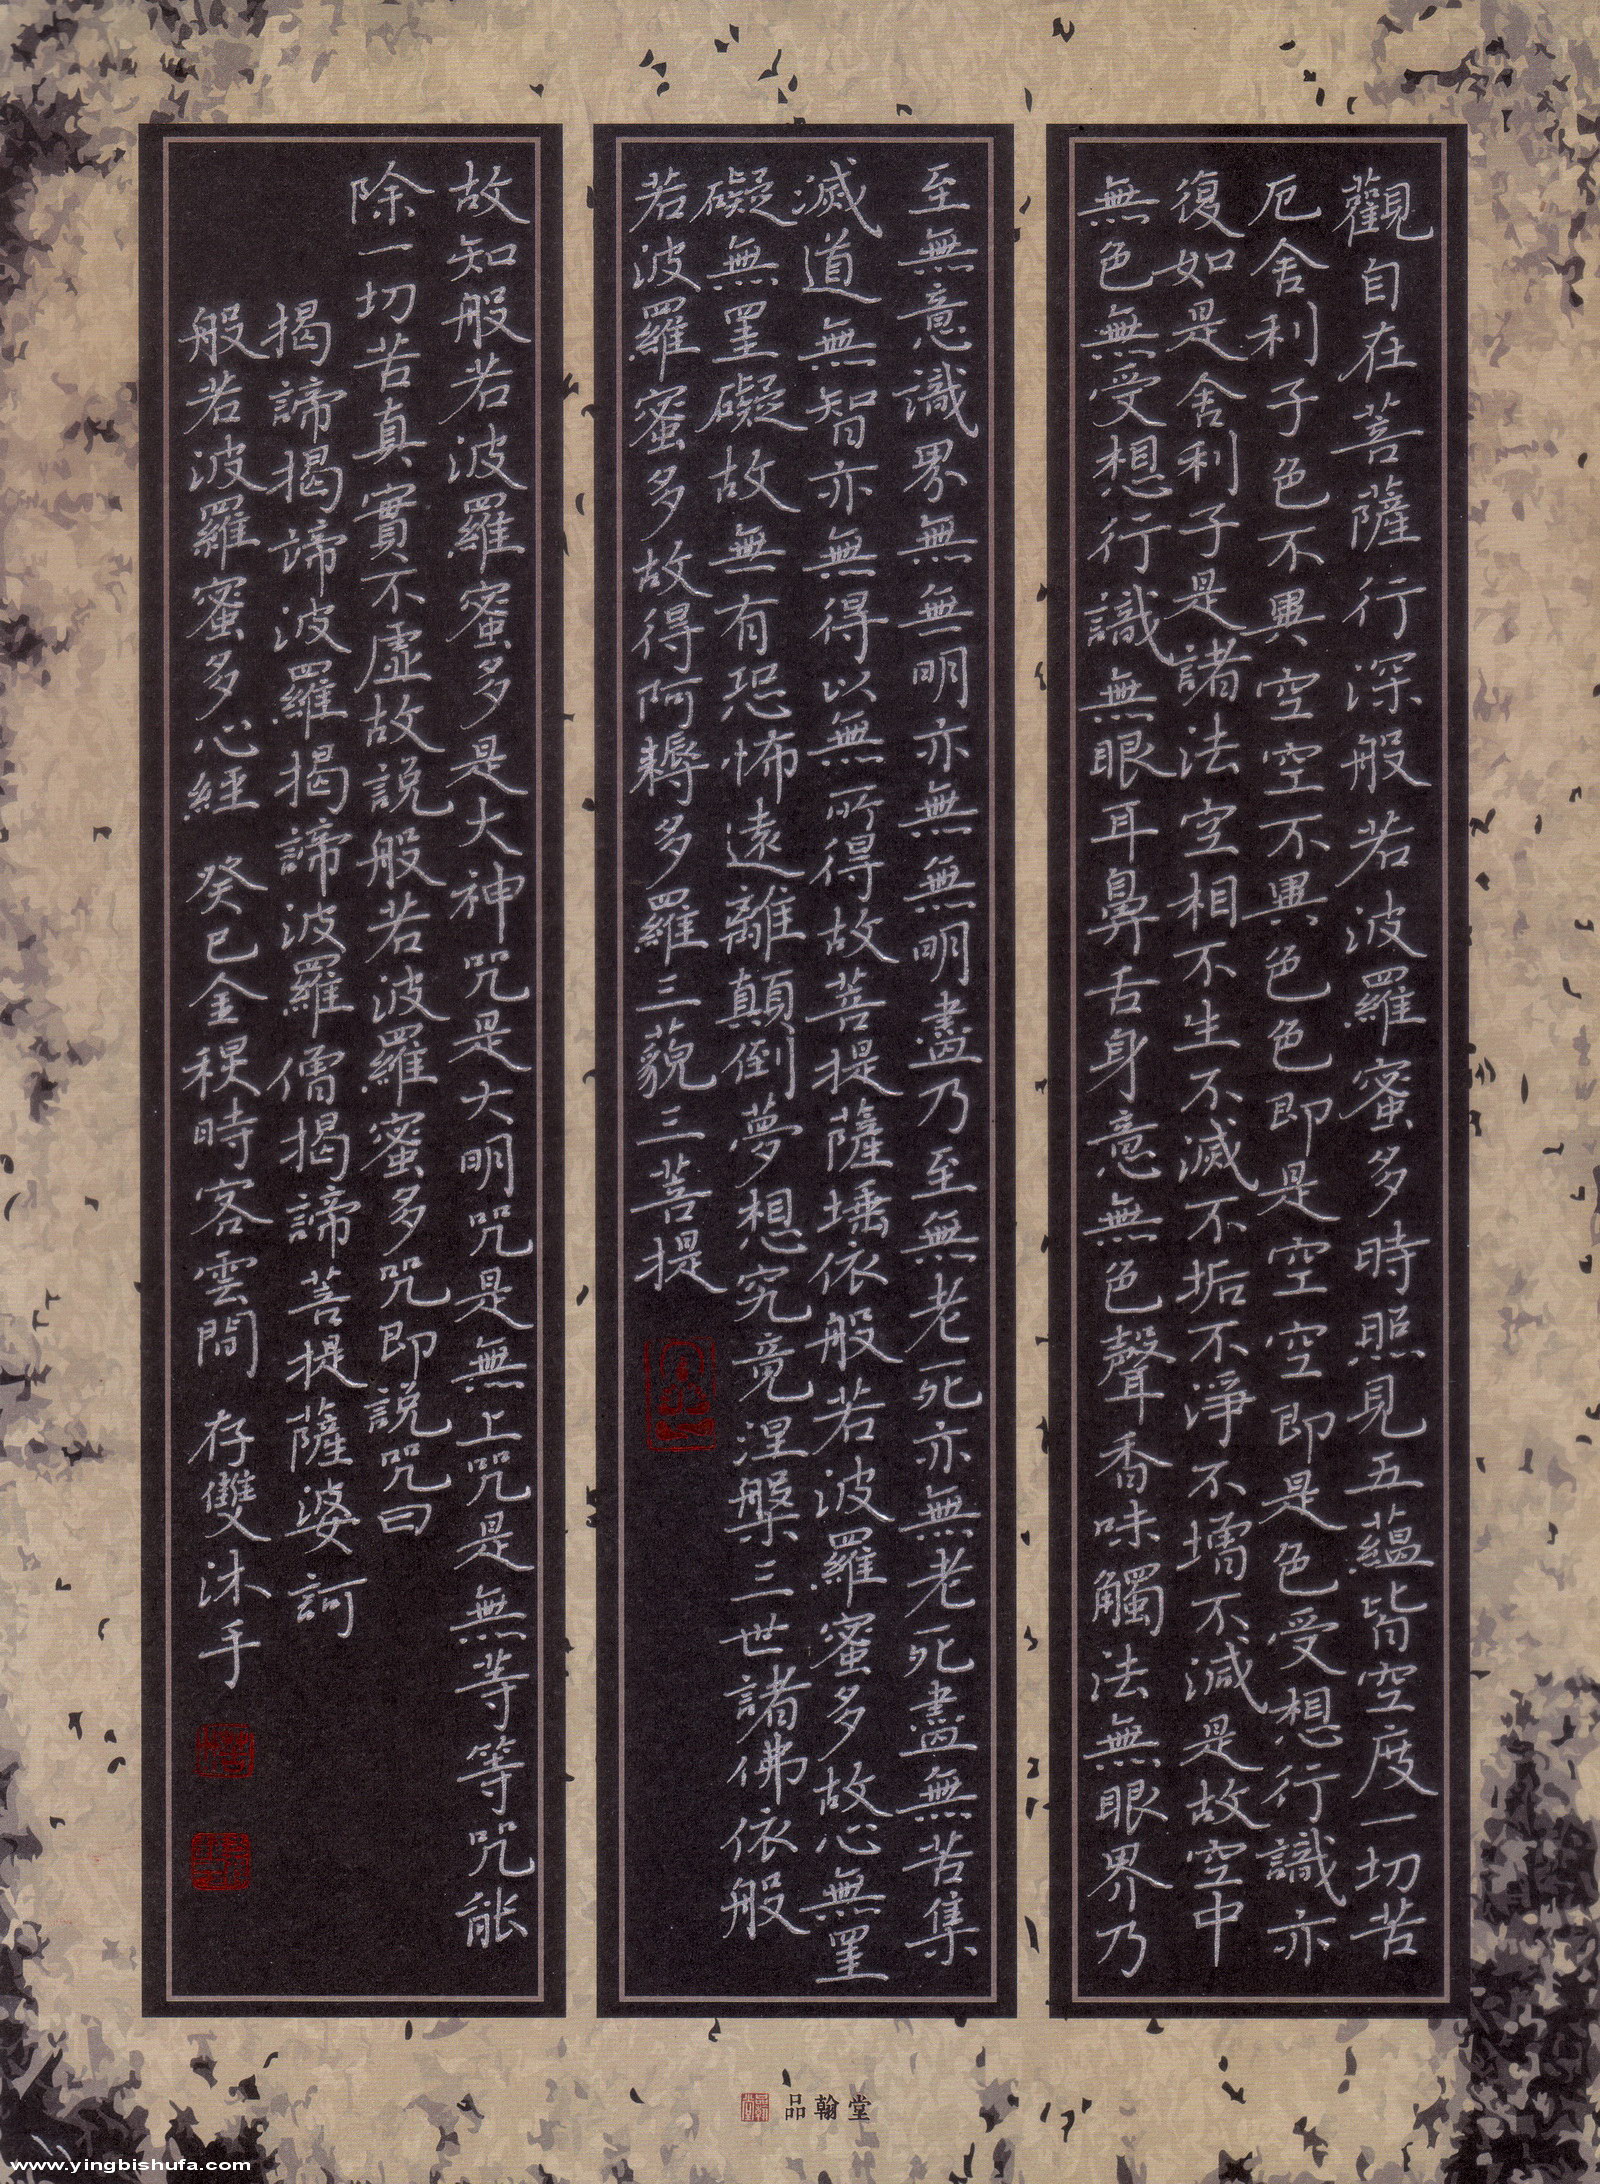 觀自在菩薩行深般若波羅蜜多時照見五蘊皆空度一切苦
厄舍利子色不異空空不異色色即是空空即是色受想行識亦
復如是舍利子是諸法空相不生不滅不垢不淨不增不減是故空中
無色無受想行識無眼耳鼻舌身意無色聲香味觸法無眼界乃
至無意識界無無明亦無無明盡乃至無老死亦無老死盡無苦集
滅道無智亦無得以無所得故菩提薩埵依般若波羅蜜多故心無罣
礙無罣礙故無有恐怖遠離顛倒夢想究竟涅槃三世諸佛依般
若波羅蜜多故得阿耨多羅三藐三菩提
故知般若波羅蜜多是大神咒是大明咒是無上咒是無等等咒能
除一切苦真實不虛故説般若波羅蜜多咒即説咒曰
揭諦揭諦波羅揭諦波羅僧揭諦菩提薩婆訶
般若波羅蜜多心經 癸巳金時客雲間 存雙沐手
品翰堂
www.yingbishufa.com